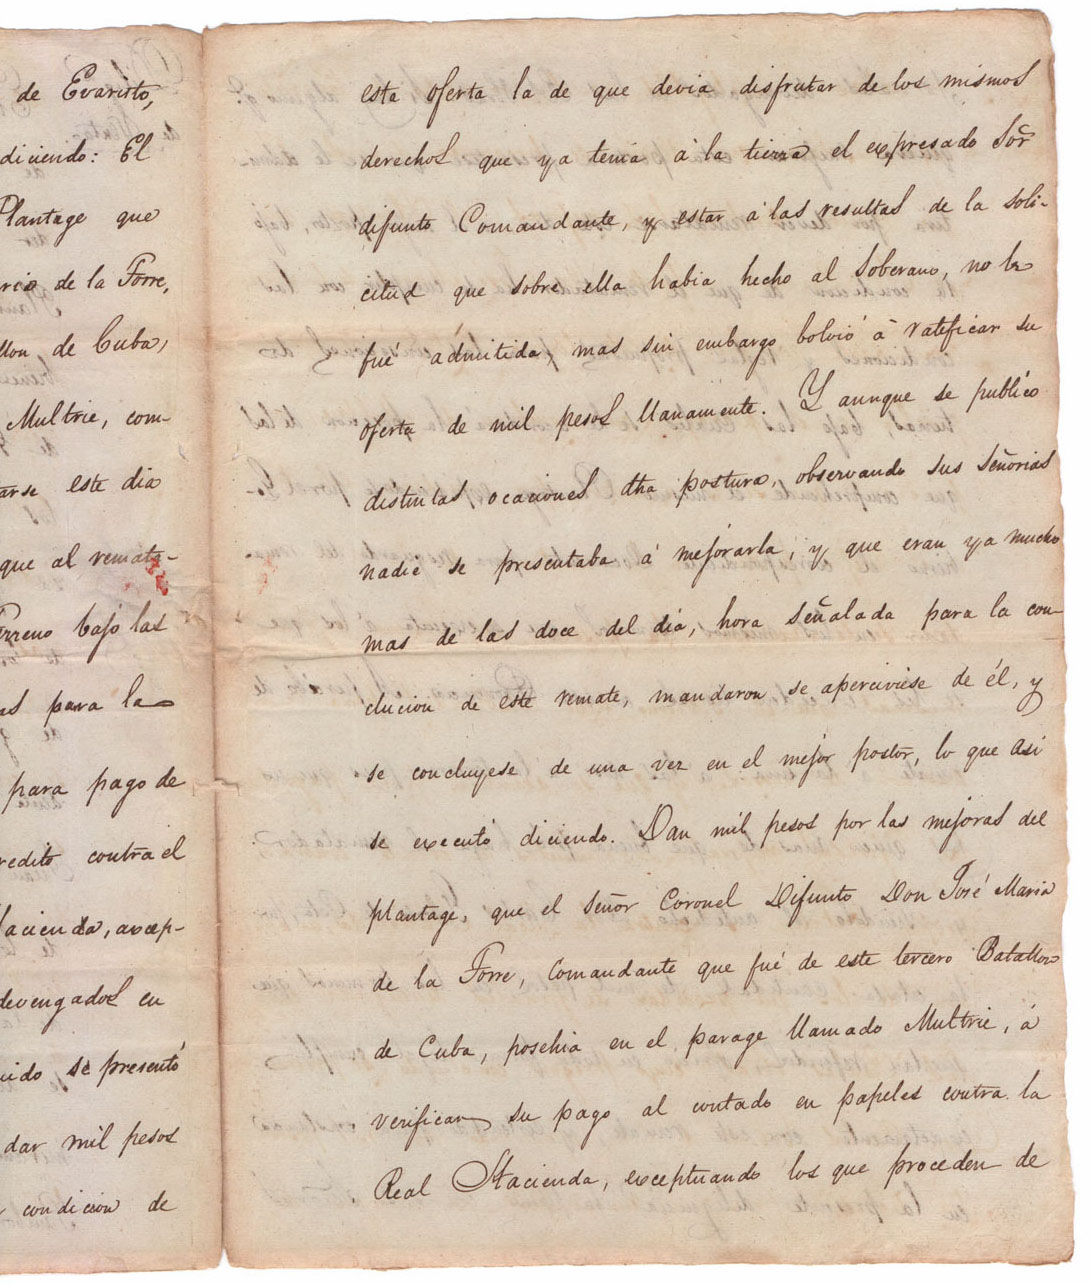 de Evaristo,
diciendo: El
Plantage que
de la Torre,
de Cuba,
Multrie, com-
este dia
que al remata-
bajo las
para la
para pago de
contra el
acienda, excep-
devengados en
se presentó
dar mil pesos
condicion de
esta oferta la de que devia disfrutar de los mismos
derechos que ya tenia á la tierra el expresado Sor̃
difunto Comandante, y estar á las resultas de la soli-
citud que sobre ella habia hecho al Soberano, no le
fué admitida, mas sin embargo bolvió á ratificar su
oferta de mil pesos llanamente. Y aunque se publicó
distintas ocaciones dha postura, observando sus Señorias
nadie se presentaba á mejorarla, y que eran ya mucho
mas de las doce del dia, hora señalada para la con-
clucion de este remate, mandaron se aperciviese de él, y
se concluyese de una vez en el mejor postor, lo que asi
se executó diciendo. Dan mil pesos por las mejoras del
plantage, que el Señor Coronel Difunto Don José Maria
de la Torre, Comandante que fué de este tercero Batallon
de Cuba, poschia en el parage llamado Multrie, á
verificar su pago al contado en papeles contra la
Real Hacienda, exceptuando los que proceden de